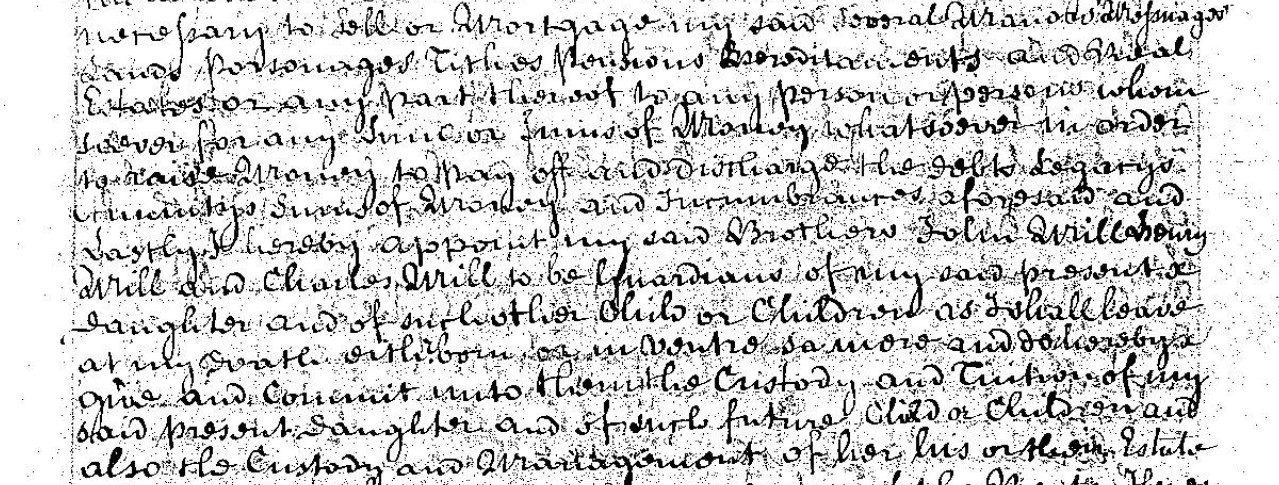 necessary to Sell or Mortgage my said several Manors Messuages
Lands Parsonages Tithes Pensions Hereditaments and Real
Estates or any Part thereof to any person or persons whom
soever for any Sume or Sums of Money whatsoever in order
to raise Money to pay off and discharge the debts Legacys
Sums of Money and Incumbrances aforesaid and
Lastly I hereby appoint my said Brothers John Mill Henry
Mill and Charles Mill to be Guardians of my said present
daughter and of such other Child or Children as I shall leave
at my death either born or in Ventre sa mere and do hereby
give and Commit unto them the Custody and Tuition of my
said present daughter and of such future Child or Children and
also the Custody and Management of her his or their Estate